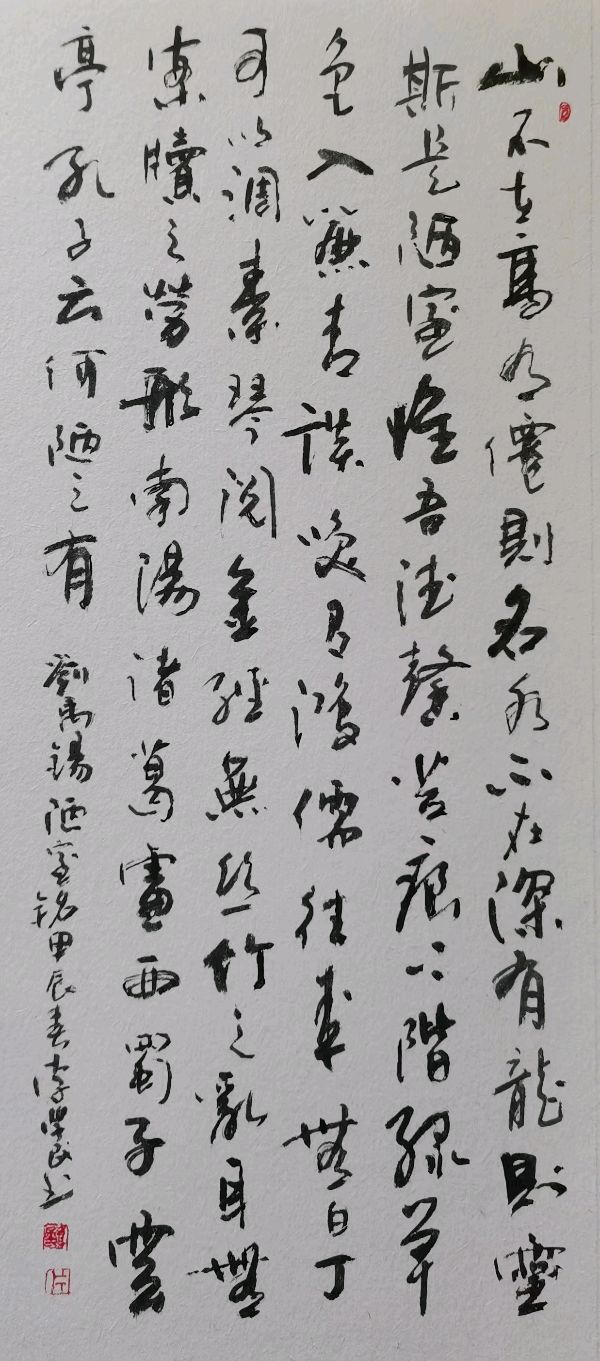 山不在高有僊則名水不在深有龍則靈
斯是陋室惟吾德馨苔痕上階綠草
色入簾青談咲有鴻儒往來無白丁
可以調素琴閱金經無絲竹之亂耳無
案牘之勞形南陽諸葛廬西蜀子雲
亭孔子云何陋之有 劉禹錫陋室銘甲辰春李學民书